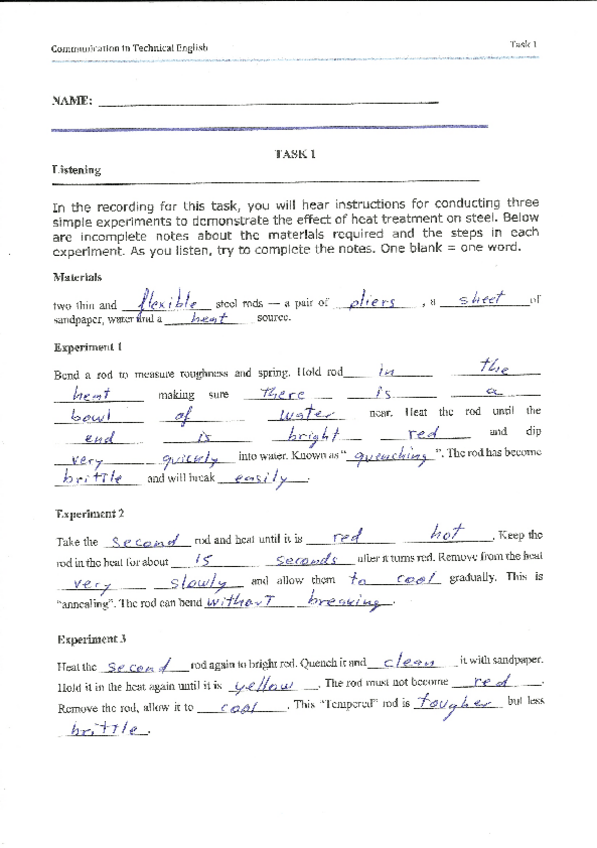 Communication in Technical English Task 1
NAME:
TASK 1
Listening
In the recording for this task, you will hear instructions for conducting three
simple experiments to demonstrate the effect of heat treatment on steel. Below
are incomplete notes about the materials required and the steps in each
experiment. As you listen, try to complete the notes. One blank = one word.
Materials
two thin and flexible steel rods — a pair of pliers , a sheet of
sandpaper, water and a heat source.
Experiment 1
Bend a rod to measure roughness and spring. Hold rod in the
heat making sure there is a
bowl of water near. Heat the rod until the
end is bright red and dip
very quickly into water. Known as " quenching ". The rod has become
brittle and will break easily .
Experiment 2
Take the second rod and heat until it is red hot . Keep the
rod in the heat for about 15 seconds after it turns red. Remove from the heat
very slowly and allow them to cool gradually. This is
"annealing". The rod can bend without breaking .
Experiment 3
Heat the second rod again to bright red. Quench it and clean it with sandpaper.
Hold it in the heat again until it is yellow . The rod must not become red .
Remove the rod, allow it to cool . This "Tempered" rod is tougher but less
brittle .